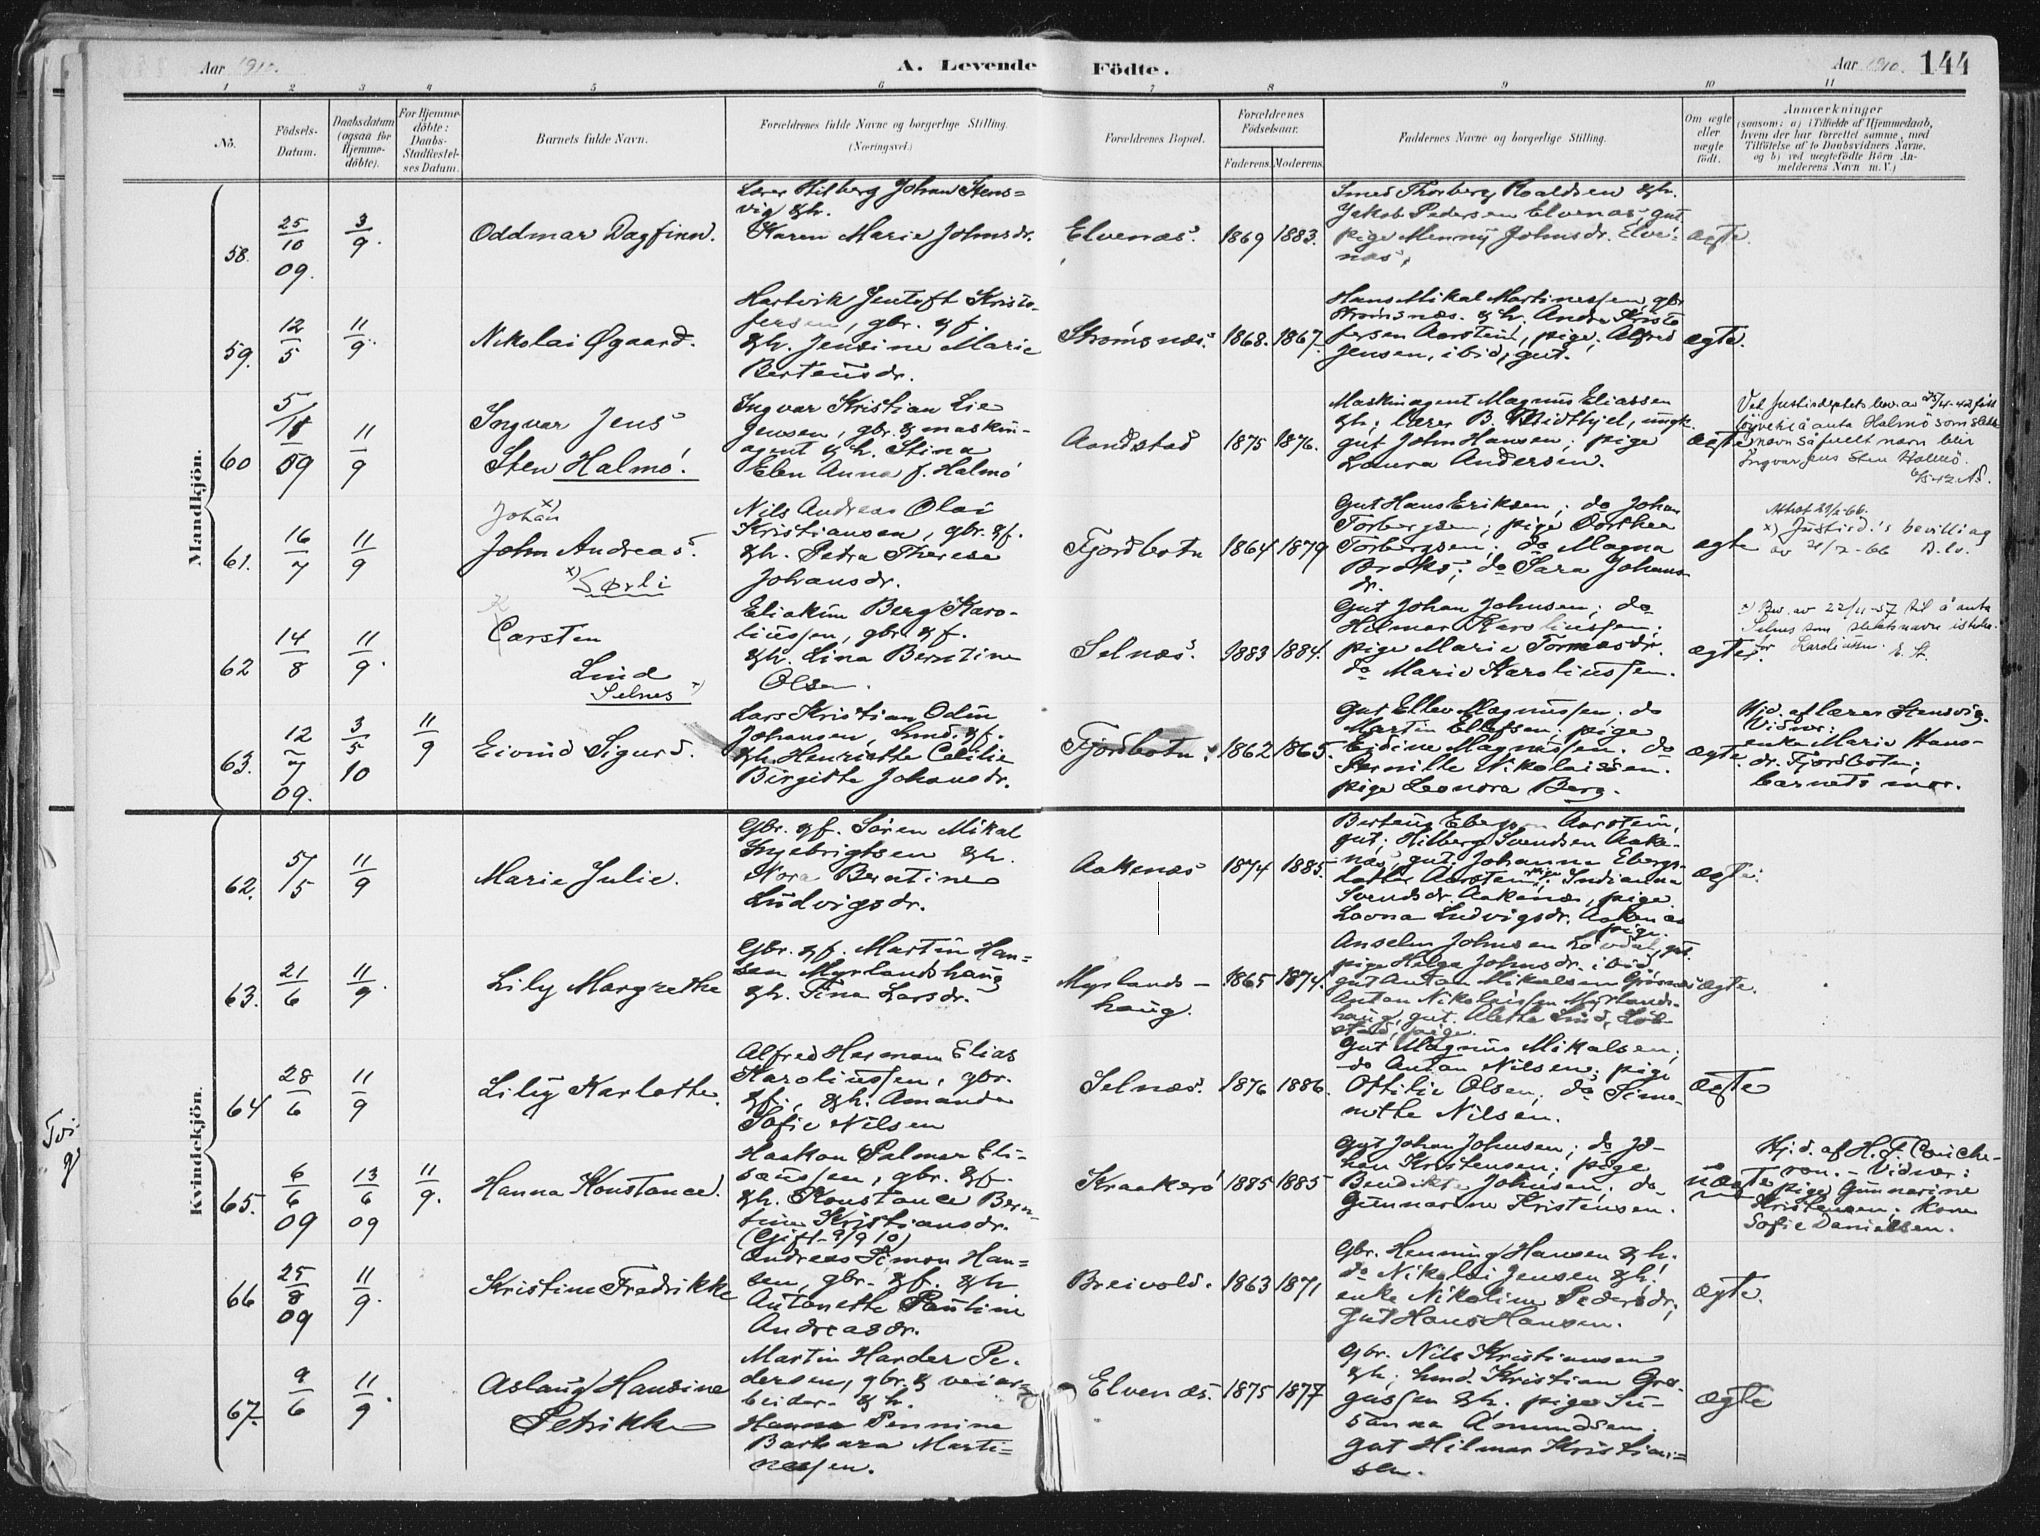 Aar 1910.
A. Levende Födte.
Aar 1910. 144
1 2 3 4 5 6 7 8 9 10 11
No.
Födsels-
Datum.
Daabsdatum
(ogsaa for
Hjemme-
döbte).
For Hjemme-
döbte:
Daabs-
Stadfæstel-
ses Datum.
Barnets fulde Navn.
Forældrenes fulde Navne og borgerlige Stilling.
(Næringsvei.)
Forældrenes Bopæl.
Forældrenes
Födselsaar.
Faderens. Moderens.
Faddernes Navne og borgerlige Stilling.
Om ægte
eller
uægte
födt.
Anmærkninger
(saasom: a) i Tilfælde af Hjemmedaab,
hvem der har forrettet samme, med
Tilföielse af to Daabsvidners Navne.
og b) ved uægtefödte Börn An-
melderens Navn m. V.)
Mandkjön.
58.
25/10 09.
3/9.
Oddmar Dagfinn.
Lærer Hilberg Johan Stens=
vig & h.
Karen Marie Johnsdr.
Elvenæs.
1869 1883.
Smed Thorberg Roaldsen & h.
Jakob Pedersen Elvenæs, gut
pige Menny Johnsdr. Elve-
næs.
ægte.
59.
12/5
11/9.
Nikolai Øgaard.
Hartvik Jentoft Kristo-
fersen, gbr. & f.
& h. Jensine Marie
Berteusdr.
Strømsnæs.
1868. 1867.
Hans Mikal Martinessen, gbr
Strømsnæs. & h., Andr. Kristo
fersen Aarstein, pige; Alfred
Jensen, ibid, gut.
ægte.
60
5/11 09
11/9
Ingvar Jens
Sten Halmö.
Ingvar Kristian Lie
Jensen, gbr. & maskin-
agent & h. Stina
Elen Anna f. Halmö
Aandstad
1875 1876.
Maskinagent Magnus Eliassen
& h; lærer B. Midthjel, ungk.
gut John Hansen; pige
Laura Andersen.
ægte
Ved Justisdeptets bev. av 25/4-42 fått
löyve til å anta Halmö som slekts
navn så fullt navn blir
Ingvar Jens Sten Halmö.
6/5-42 AS.
61.
16/7
11/9
Johan x)
John Andreas.
x) Sørli
Nils Andreas Olai
Kristiansen, gbr. & f.
& h. Petra Therese
Johansdr.
Fjordbotn
1864 1879
Gut Hans Eriksen; do Johan
Torbergsen; pige Dorthea
Torbergsen; do Magna
Broks; do Sara Johans
dr.
ægte
x) Justisd.'s bevilling
av 21/2-66
62
14/8
11/9.
K
Carsten
Lind
Selnes x)
Eliakim Berg Karo-
liussen, gbr. & f.
& h. Lina Berntine
Olsen.
Selnæs.
1883 1884.
Gut Johan Johnsen; do
Hilmar Karoliussen;
pige Marie Tomasdr.
do Marie Karoliussen.
ægte.
x) Bev. av 22/11-57 til å anta
Selnes som slektsnavn isteden-
for Karoliussen. E. St.
63.
12/7 09.
3/5 10
11/9
Eivind Sigurd.
Lars Kristian Odin
Johansen, Smd. & f.
& h. Henriette Cecilie
Birgitte Johansdr.
Fjordbotn.
1862 1865.
Gut Ellev Magnussen; do
Martin Ellefsen; pige
Eidine Magnussen. do
Pernille Nikolaisen.
pige Leonora Berg.
ægte.
Hjd. af lærer Stensvig.
Vidner:
enke Marie Hans-
dr. Fjordbotn;
barnets mor.
Kvindekjön.
62.
5/5
11/9
Marie Julie.
Gbr. & f. Sören Mikal
Ingebrigtsen & h.
Nora Berntine
Ludvigsdr.
Aakenæs
1874 1885.
Berteus Ebergsen Aarstein,
gut; Hilberg Svendsen Aake-
næs, gut; Johanna Ebergs-
datter Aarstein, pige; Indianna
Svendsdr. Aakenæs, pige
Lovna Ludvigsdr. Aakenæs
pige.
ægte.
63.
21/6
11/9.
Lily Margrethe
Gbr. & f. Martin Han-
sen Myrlandshaug
& h. Tina Larsdr.
Myrlands-
haug.
1865 1874.
Anselm Johnsen Lovdal, gut
pige Helga Johnsdr. ibid
gut Anton Mikalsen Grösnæs
Anton Nikolaissen Myrlands-
haug, gut. Alethe Lind, Lob-
stad, pige.
ægte.
64
28/6
11/9
Lily Karlotte.
Alfred Herman Elias
Karoliussen, gbr.
& f., & h. Amanda
Sofie Nilsen
Selnæs.
1876 1886.
Gut Magnus Mikalsen;
do Anton Nilsen; pige
Ottilie Olsen; do Sime-
nethe Nilsen.
ægte
65.
6/6 09
13/6 09
11/9.
Hanna Konstance.
Haakon Palmar Eli-
saussen, gbr. & f.
& h. Konstance Bern-
tine Kristiansdr.
(Gift 9/9 10)
Kraakerö
1885 1885
Gut Johan Johnsen; do Jo-
han Kristensen; pige
Benedikte Johnsen; do
Gunnarine Kristensen.
uægte
Hj.d. af H. F. Couche-
ron. - Vidner:
pige Gunnarine
Kristensen; kone
Sofie Danielsen.
66
25/8 09
11/9.
Kristine Fredrikke
Andreas Simon Han-
sen, gbr. & f. & h
Antonette Pauline
Andreasdr.
Breivold.
1863 1871
Gbr. Henning Hansen & h;
do Nikolai Jensen & h;
enke Nikoline Pedersdr;
Gut Hans Hansen.
ægte.
67.
9/6
11/9
Aslaug Hansine
Petrikke
Martin Harder Pe-
dersen, gbr. & veiar-
beider. & h.
Hanna Pennine
Barbara Marti-
nessen.
Elvenæs.
1875 1877
Gbr. Nils Kristiansen
& h; Smd. Kristian Gre-
gussen & h. pige Su-
sanna Amundsen;
gut Hilmar Kristian=
sen.
ægte